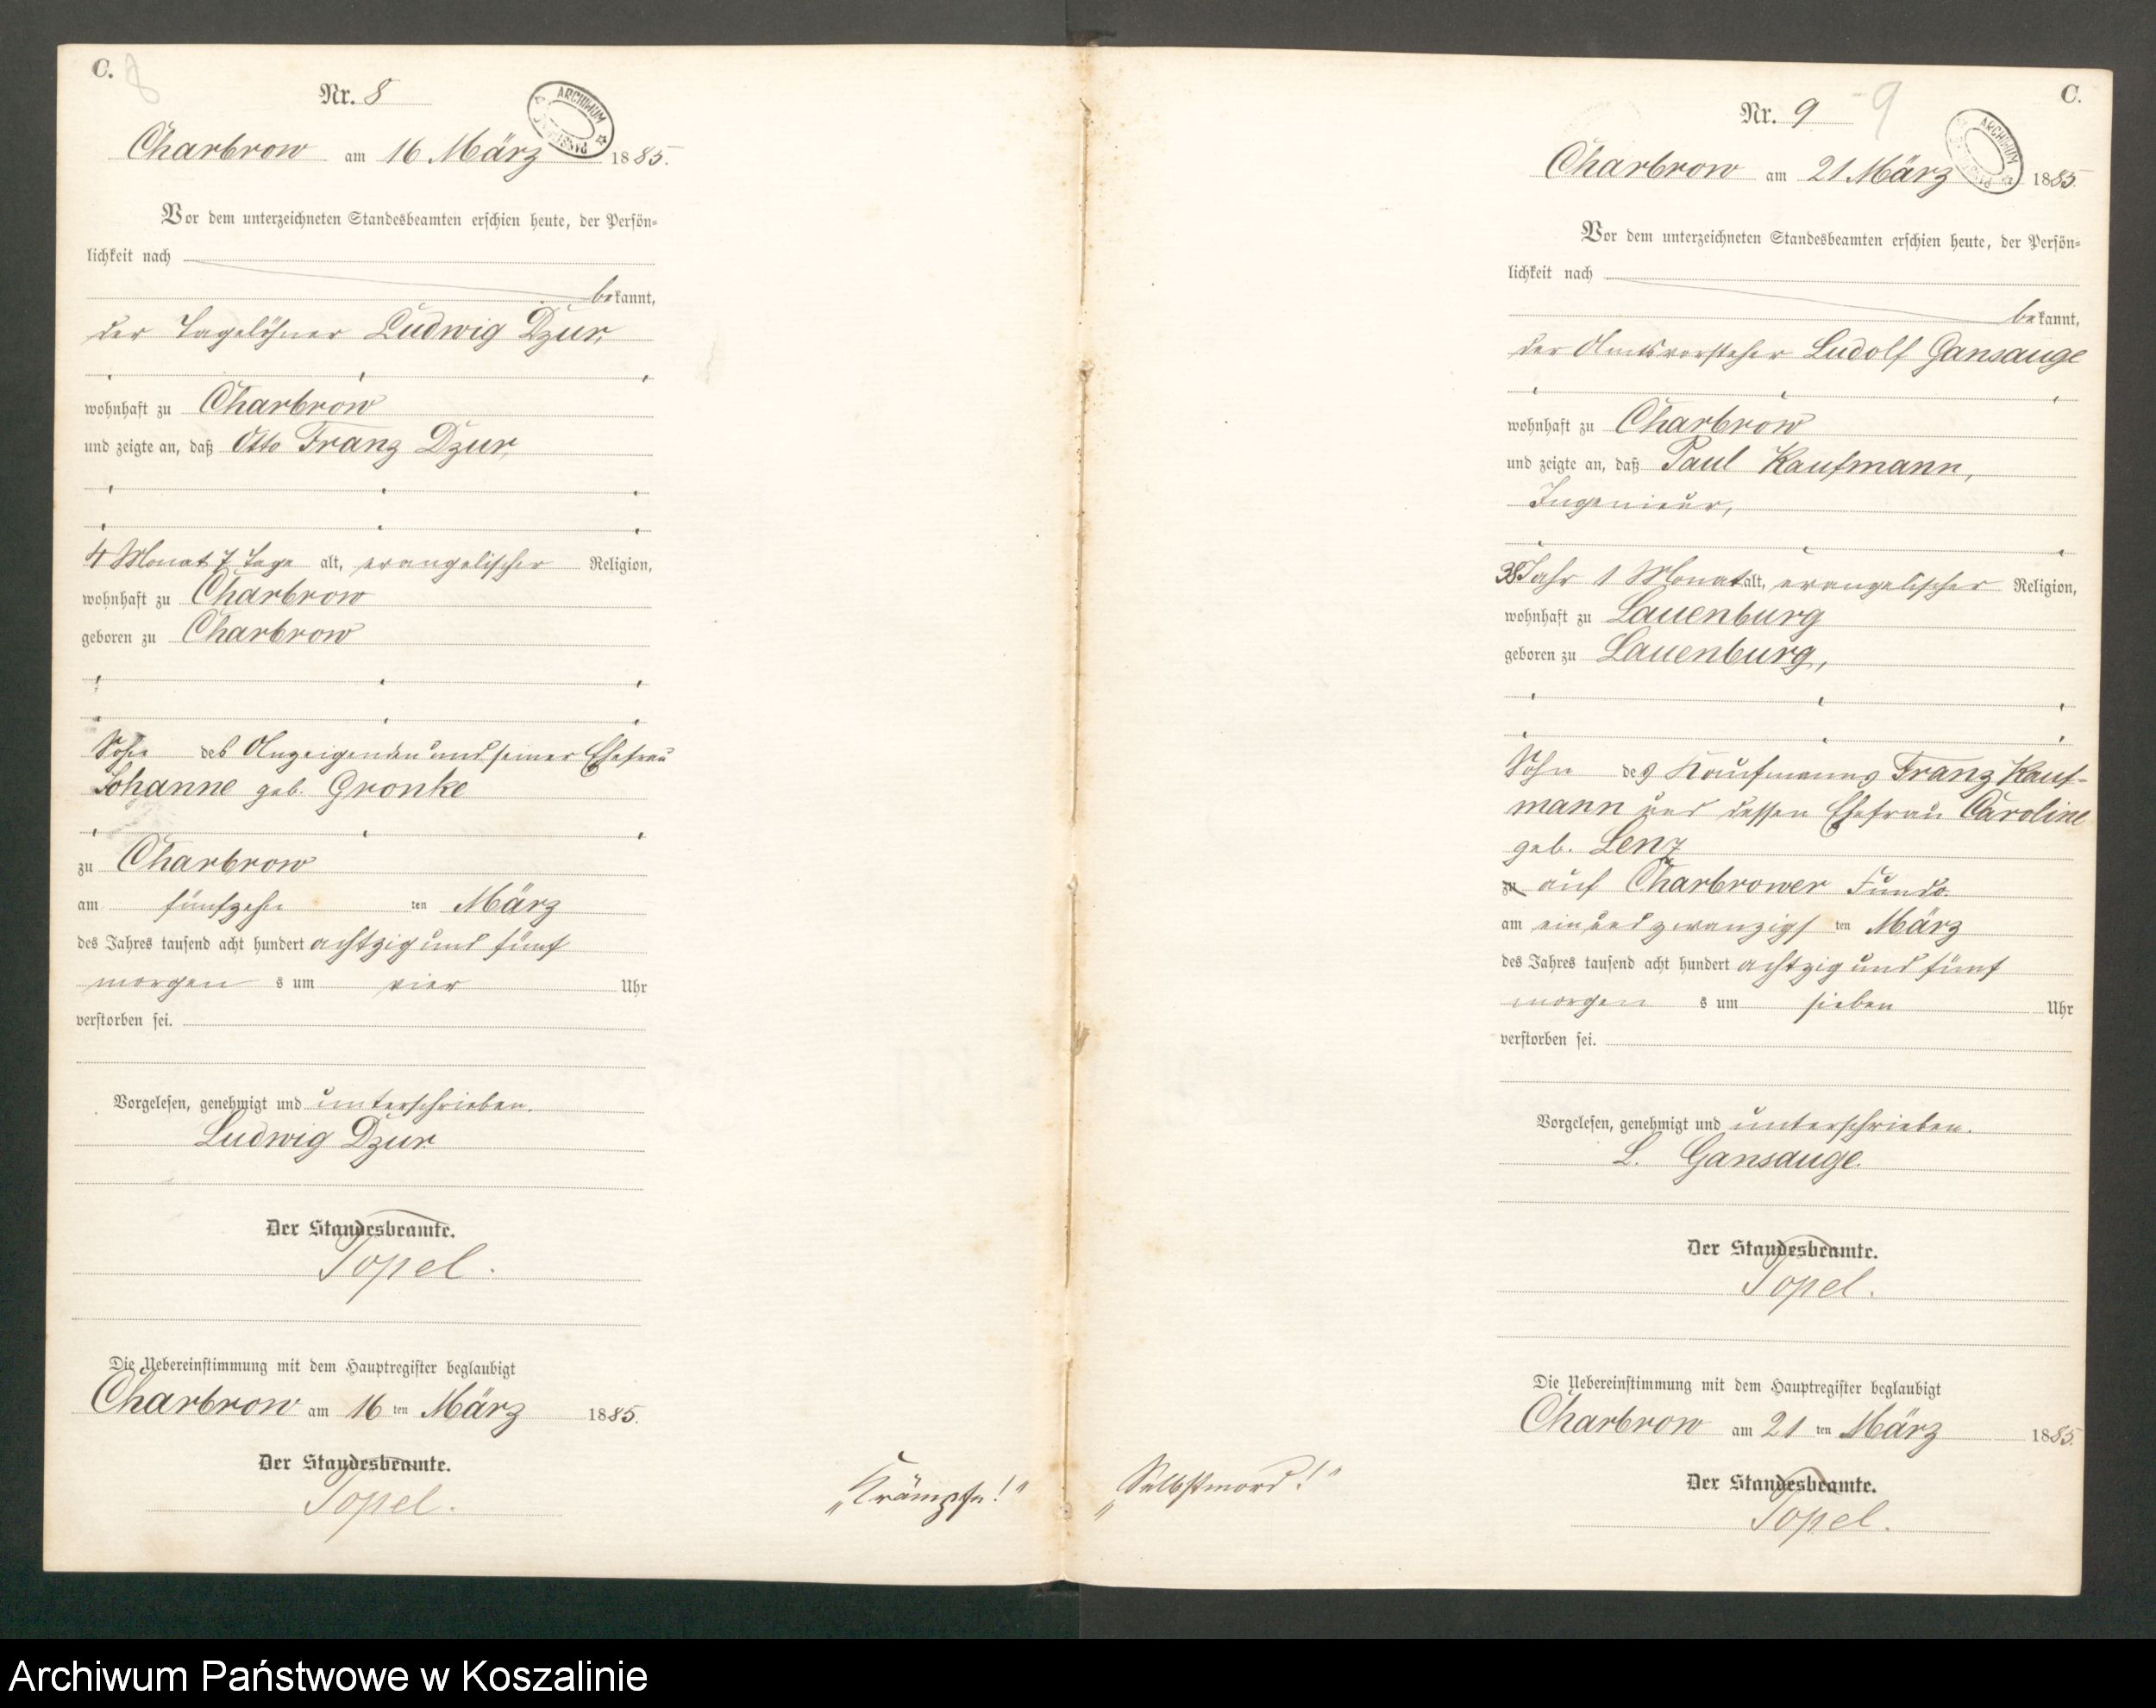 C.
8
Nr. 8
ARCHIWUM
Charbrow am 16 März 1885.
Vor dem unterzeichneten Standesbeamten erschien heute, der Persön=
lichkeit nach
bekannt,
der Tagelöhner Ludwig Dzur,
wohnhaft zu Charbrow
und zeigte an, daß Otto Franz Dzur,
4 Monat 7 Tage alt, evangelischer Religion,
wohnhaft zu Charbrow
geboren zu Charbrow
Sohn des Anzeigenden und seiner Ehefrau
Johanne geb. Gronke
zu Charbrow
am fünfzehn ten März
des Jahres tausend acht hundert achtzig und fünf
morgen s um vier Uhr
verstorben sei.
Vorgelesen, genehmigt und unterschrieben.
Ludwig Dzur
Der Standesbeamte.
Topel.
Die Uebereinstimmung mit dem Hauptregister beglaubigt
Charbrow am 16 ten März 1885.
Der Standesbeamte.
Topel.
„Krämpfe!“
C.
9
Nr. 9
ARCHIWUM
Charbrow am 21 März 1885.
Vor dem unterzeichneten Standesbeamten erschien heute, der Persön=
lichkeit nach
bekannt,
der Amtsvorsteher Ludolf Gansauge
wohnhaft zu Charbrow
und zeigte an, daß Paul Kaufmann,
Ingenieur,
38 Jahr 1 Monat alt, evangelischer Religion,
wohnhaft zu Lauenburg
geboren zu Lauenburg,
Sohn des Kaufmanns Franz Kauf-
mann und dessen Ehefrau Caroline
geb. Lenz
zu auf Charbrower Fundo.
am ein und zwanzigs ten März
des Jahres tausend acht hundert achtzig und fünf
morgen s um sieben Uhr
verstorben sei.
Vorgelesen, genehmigt und unterschrieben.
L. Gansauge.
Der Standesbeamte.
Topel.
Die Uebereinstimmung mit dem Hauptregister beglaubigt
Charbrow am 21 ten März 1885.
Der Standesbeamte.
Topel.
„Selbstmord!“
Archiwum Państwowe w Koszalinie